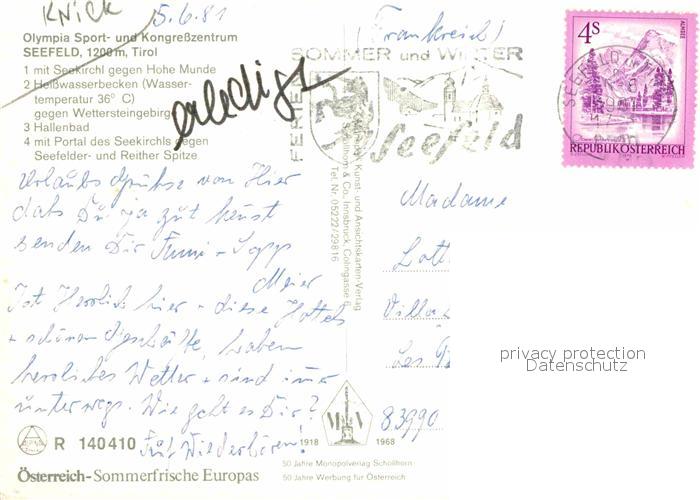 Knick 15.6.81
Olympia Sport- und Kongreßzentrum
SEEFELD, 1200 m, Tirol
1 mit Seekirchl gegen Hohe Munde
2 Heißwasserbecken (Wasser-
temperatur 36° C)
gegen Wettersteingebirge
3 Hallenbad
4 mit Portal des Seekirchls gegen
Seefelder- und Reither Spitze
erledigt
(Frankreich)
SOMMER und WINTER
FERIEN
Seefeld
4s
ALMSEE
REPUBLIK ÖSTERREICH
Urlaubsgrüße von Hier
das Du ja gut kennst
senden Dir Fanni - Sepp
Meier
Ist Herrlich hier - diese Hotels
+ schönen Geschäfte, haben
herrliches Wetter + sind imer
unterwegs. Wie geht es Dir?
Auf Wiederhören!
Kunst- und Ansichtskarten-Verlag
& Co., Innsbruck, Colingasse
Tel. Nr. 05222/29816
Madame
Lott
Villa
Les
83990
privacy protection
Datenschutz
R 140410
1918 1968
50 Jahre Monopolverlag Schollhorn
50 Jahre Werbung für Österreich
Österreich-Sommerfrische Europas